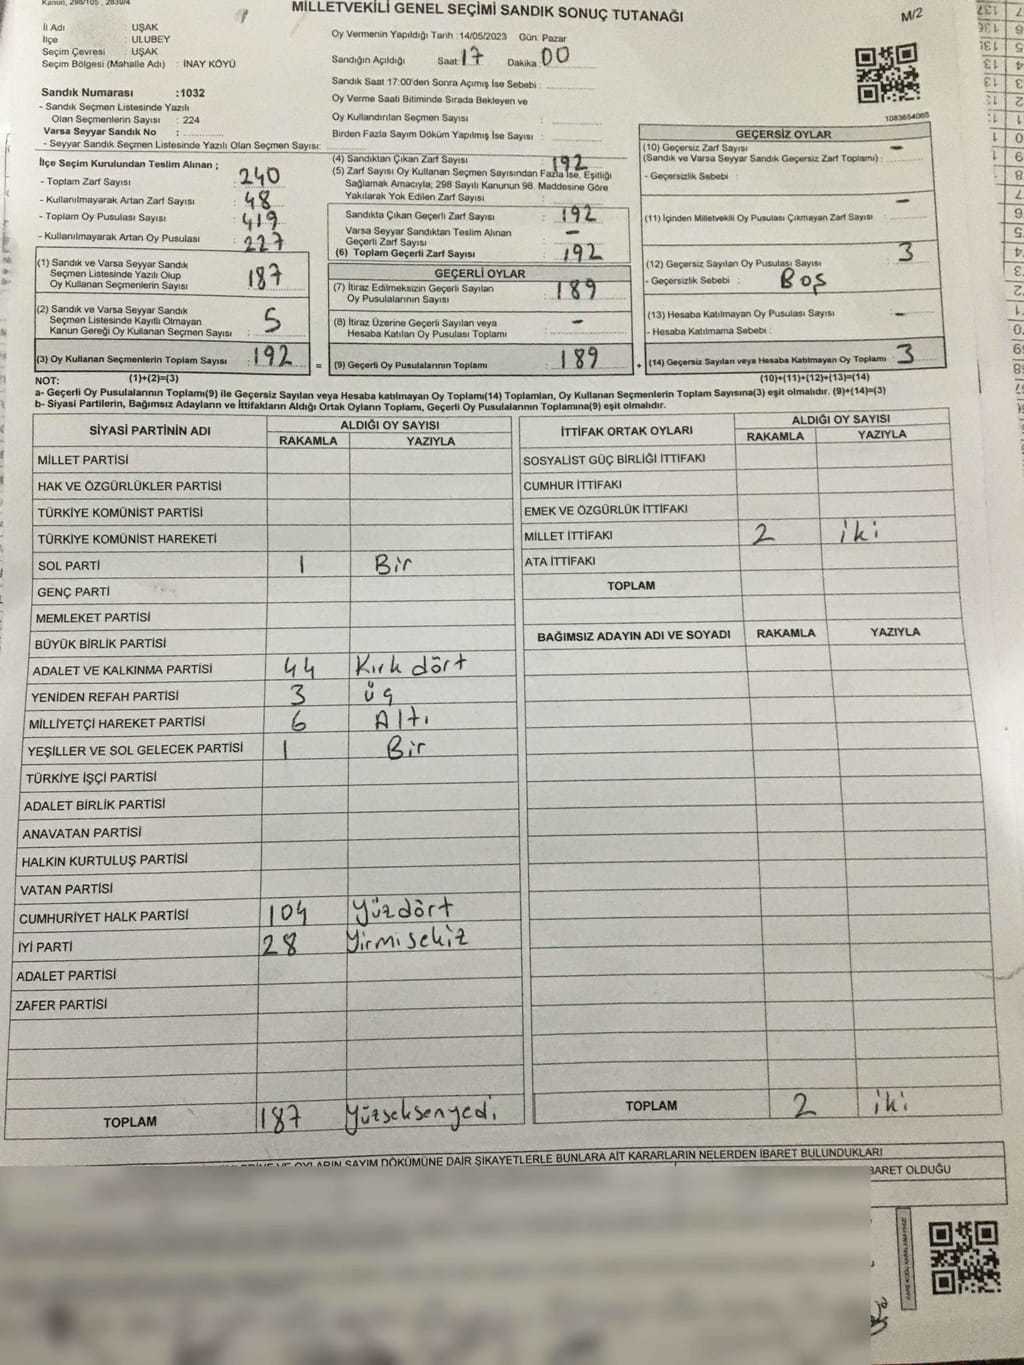 Kanun, 298/105 , 2839/4
MİLLETVEKİLİ GENEL SEÇİMİ SANDIK SONUÇ TUTANAĞI
M/2
İl Adı : UŞAK
İlçe : ULUBEY
Seçim Çevresi : UŞAK
Seçim Bölgesi (Mahalle Adı) : İNAY KÖYÜ
Sandık Numarası :1032
- Sandık Seçmen Listesinde Yazılı
Olan Seçmenlerin Sayısı : 224
Varsa Seyyar Sandık No :
- Seyyar Sandık Seçmen Listesinde Yazılı Olan Seçmen Sayısı:
Oy Vermenin Yapıldığı Tarih :14/05/2023 Gün: Pazar
Sandığın Açıldığı Saat: 17 Dakika: 00
Sandık Saat 17:00'den Sonra Açımış İse Sebebi :
Oy Verme Saati Bitiminde Sırada Bekleyen ve
Oy Kullandırılan Seçmen Sayısı :
Birden Fazla Sayım Döküm Yapılmış İse Sayısı :
1083654065
İlçe Seçim Kurulundan Teslim Alınan ;
- Toplam Zarf Sayısı : 240
- Kullanılmayarak Artan Zarf Sayısı : 48
- Toplam Oy Pusulası Sayısı : 419
- Kullanılmayarak Artan Oy Pusulası : 227
(1) Sandık ve Varsa Seyyar Sandık
Seçmen Listesinde Yazılı Olup
Oy Kullanan Seçmenlerin Sayısı : 187
(2) Sandık ve Varsa Seyyar Sandık
Seçmen Listesinde Kayıtlı Olmayan
Kanun Gereği Oy Kullanan Seçmen Sayısı : 5
(3) Oy Kullanan Seçmenlerin Toplam Sayısı : 192
(1)+(2)=(3)
(4) Sandıktan Çıkan Zarf Sayısı : 192
(5) Zarf Sayısı Oy Kullanan Seçmen Sayısından Fazla İse, Eşitliği
Sağlamak Amacıyla; 298 Sayılı Kanunun 98. Maddesine Göre
Yakılarak Yok Edilen Zarf Sayısı :
Sandıkta Çıkan Geçerli Zarf Sayısı : 192
Varsa Seyyar Sandıktan Teslim Alınan
Geçerli Zarf Sayısı : -
(6) Toplam Geçerli Zarf Sayısı : 192
GEÇERLİ OYLAR
(7) İtiraz Edilmeksizin Geçerli Sayılan
Oy Pusulalarının Sayısı : 189
(8) İtiraz Üzerine Geçerli Sayılan veya
Hesaba Katılan Oy Pusulası Toplamı : -
= (9) Geçerli Oy Pusulalarının Toplamı : 189
GEÇERSİZ OYLAR
(10) Geçersiz Zarf Sayısı
(Sandık ve Varsa Seyyar Sandık Geçersiz Zarf Toplamı) : -
- Geçersizlik Sebebi :
(11) İçinden Milletvekili Oy Pusulası Çıkmayan Zarf Sayısı : -
(12) Geçersiz Sayılan Oy Pusulası Sayısı : 3
- Geçersizlik Sebebi : Boş
(13) Hesaba Katılmayan Oy Pusulası Sayısı : -
- Hesaba Katılmama Sebebi :
+ (14) Geçersiz Sayılan veya Hesaba Katılmayan Oy Toplamı : 3
(10)+(11)+(12)+(13)=(14)
NOT:
a- Geçerli Oy Pusulalarının Toplamı(9) ile Geçersiz Sayılan veya Hesaba katılmayan Oy Toplamı(14) Toplamları, Oy Kullanan Seçmenlerin Toplam Sayısına(3) eşit olmalıdır. (9)+(14)=(3)
b- Siyasi Partilerin, Bağımsız Adayların ve İttifakların Aldığı Ortak Oyların Toplamı, Geçerli Oy Pusulalarının Toplamına(9) eşit olmalıdır.
SİYASİ PARTİNİN ADI
ALDIĞI OY SAYISI
RAKAMLA YAZIYLA
MİLLET PARTİSİ
HAK VE ÖZGÜRLÜKLER PARTİSİ
TÜRKİYE KOMÜNİST PARTİSİ
TÜRKİYE KOMÜNİST HAREKETİ
SOL PARTİ 1 Bir
GENÇ PARTİ
MEMLEKET PARTİSİ
BÜYÜK BİRLİK PARTİSİ
ADALET VE KALKINMA PARTİSİ 44 Kırk dört
YENİDEN REFAH PARTİSİ 3 üç
MİLLİYETÇİ HAREKET PARTİSİ 6 Altı
YEŞİLLER VE SOL GELECEK PARTİSİ 1 Bir
TÜRKİYE İŞÇİ PARTİSİ
ADALET BİRLİK PARTİSİ
ANAVATAN PARTİSİ
HALKIN KURTULUŞ PARTİSİ
VATAN PARTİSİ
CUMHURİYET HALK PARTİSİ 104 Yüzdört
İYİ PARTİ 28 Yirmisekiz
ADALET PARTİSİ
ZAFER PARTİSİ
TOPLAM 187 Yüzseksenyedi
İTTİFAK ORTAK OYLARI
ALDIĞI OY SAYISI
RAKAMLA YAZIYLA
SOSYALİST GÜÇ BİRLİĞİ İTTİFAKI
CUMHUR İTTİFAKI
EMEK VE ÖZGÜRLÜK İTTİFAKI
MİLLET İTTİFAKI 2 iki
ATA İTTİFAKI
TOPLAM
BAĞIMSIZ ADAYIN ADI VE SOYADI RAKAMLA YAZIYLA
TOPLAM 2 iki
OYLARIN SAYIM DÖKÜMÜNE DAİR ŞİKAYETLERLE BUNLARA AİT KARARLARIN NELERDEN İBARET BULUNDUKLARI
BARET OLDUĞU